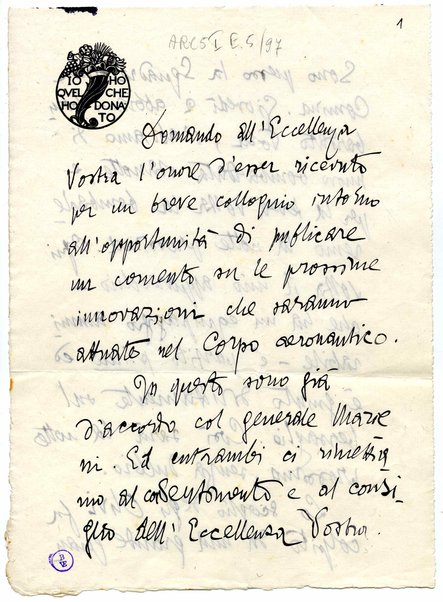 1
IO HO
QUEL CHE
HO DONA
TO
Domando all'Eccellenza
Vostra l'onore d'esser ricevuto
per un breve colloquio intorno
all'opportunità di publicare
un comento su le prossime
innovazioni che saranno
attuate nel Corpo aeronautico.
In questo sono già
d'accordo col generale Marie
ni. Ed entrambi ci rimettia
mo al consentimento e al consi
glio dell'Eccellenza Vostra.